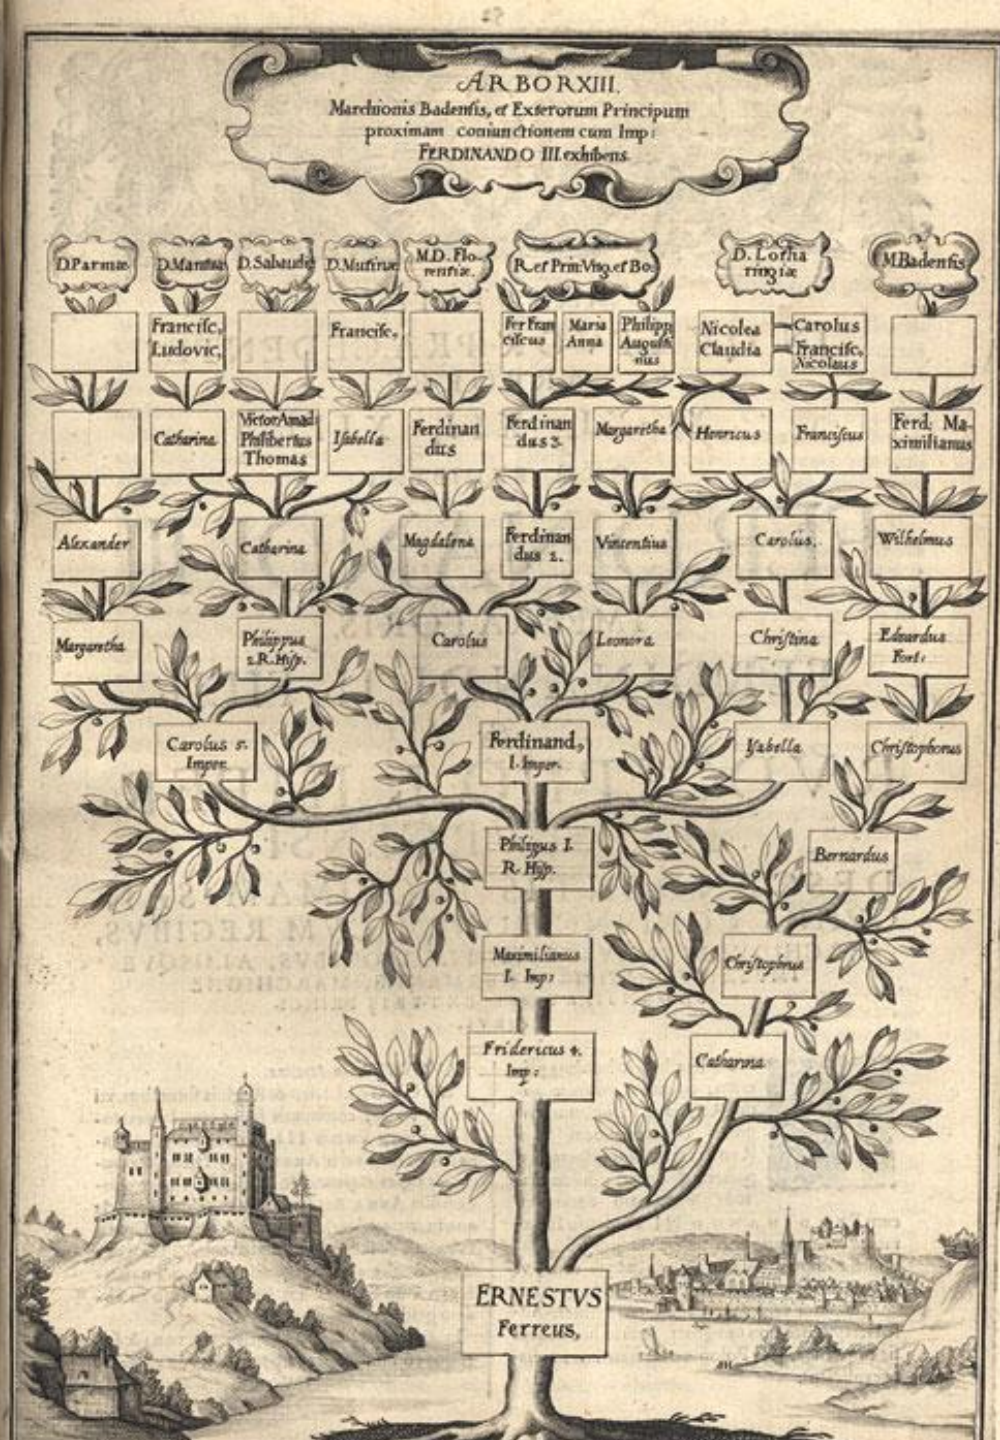 ARBOR XIII.
Marchionis Badensis, et Exterorum Principum
proximam coniunctionem cum Imp:
FERDINANDO III. exhibens.
D. Parmæ
D. Mantuæ
D. Sabaudiæ
D. Mutinæ
M.D. Flo-
rentiæ.
R. et Prin: Vng. et Bo:
D. Lotha
ringiæ
3.
M. Badensis
Francisc,
Ludovic,
Francisc,
Fer Fran
ciscus
Maria
Anna
Philipp
Augusti
nus
Nicolea
Claudia
Carolus
Francisc,
Nicolaus
Catharina
Victor Amad:
Philibertus
Thomas
Isabella
Ferdinan
dus
Ferdinan
dus 3.
Margaretha
Henricus
Franciscus
Ferd: Ma-
ximilianus
Alexander
Catharina
Magdalena
Ferdinan
dus 2.
Vincentius
Carolus.
Wilhelmus
Margaretha
Philippus
2. R. Hisp.
Carolus
Leonora
Christina
Eduardus
Fort:
Carolus 5.
Imper.
Ferdinand,
I. Imper.
Isabella
Christophorus
Philippus I.
R. Hisp.
Bernardus
Maximilianus
I. Imp:
Christophrus
Fridericus 4.
Imp:
Catharina
ERNESTVS
Ferreus,